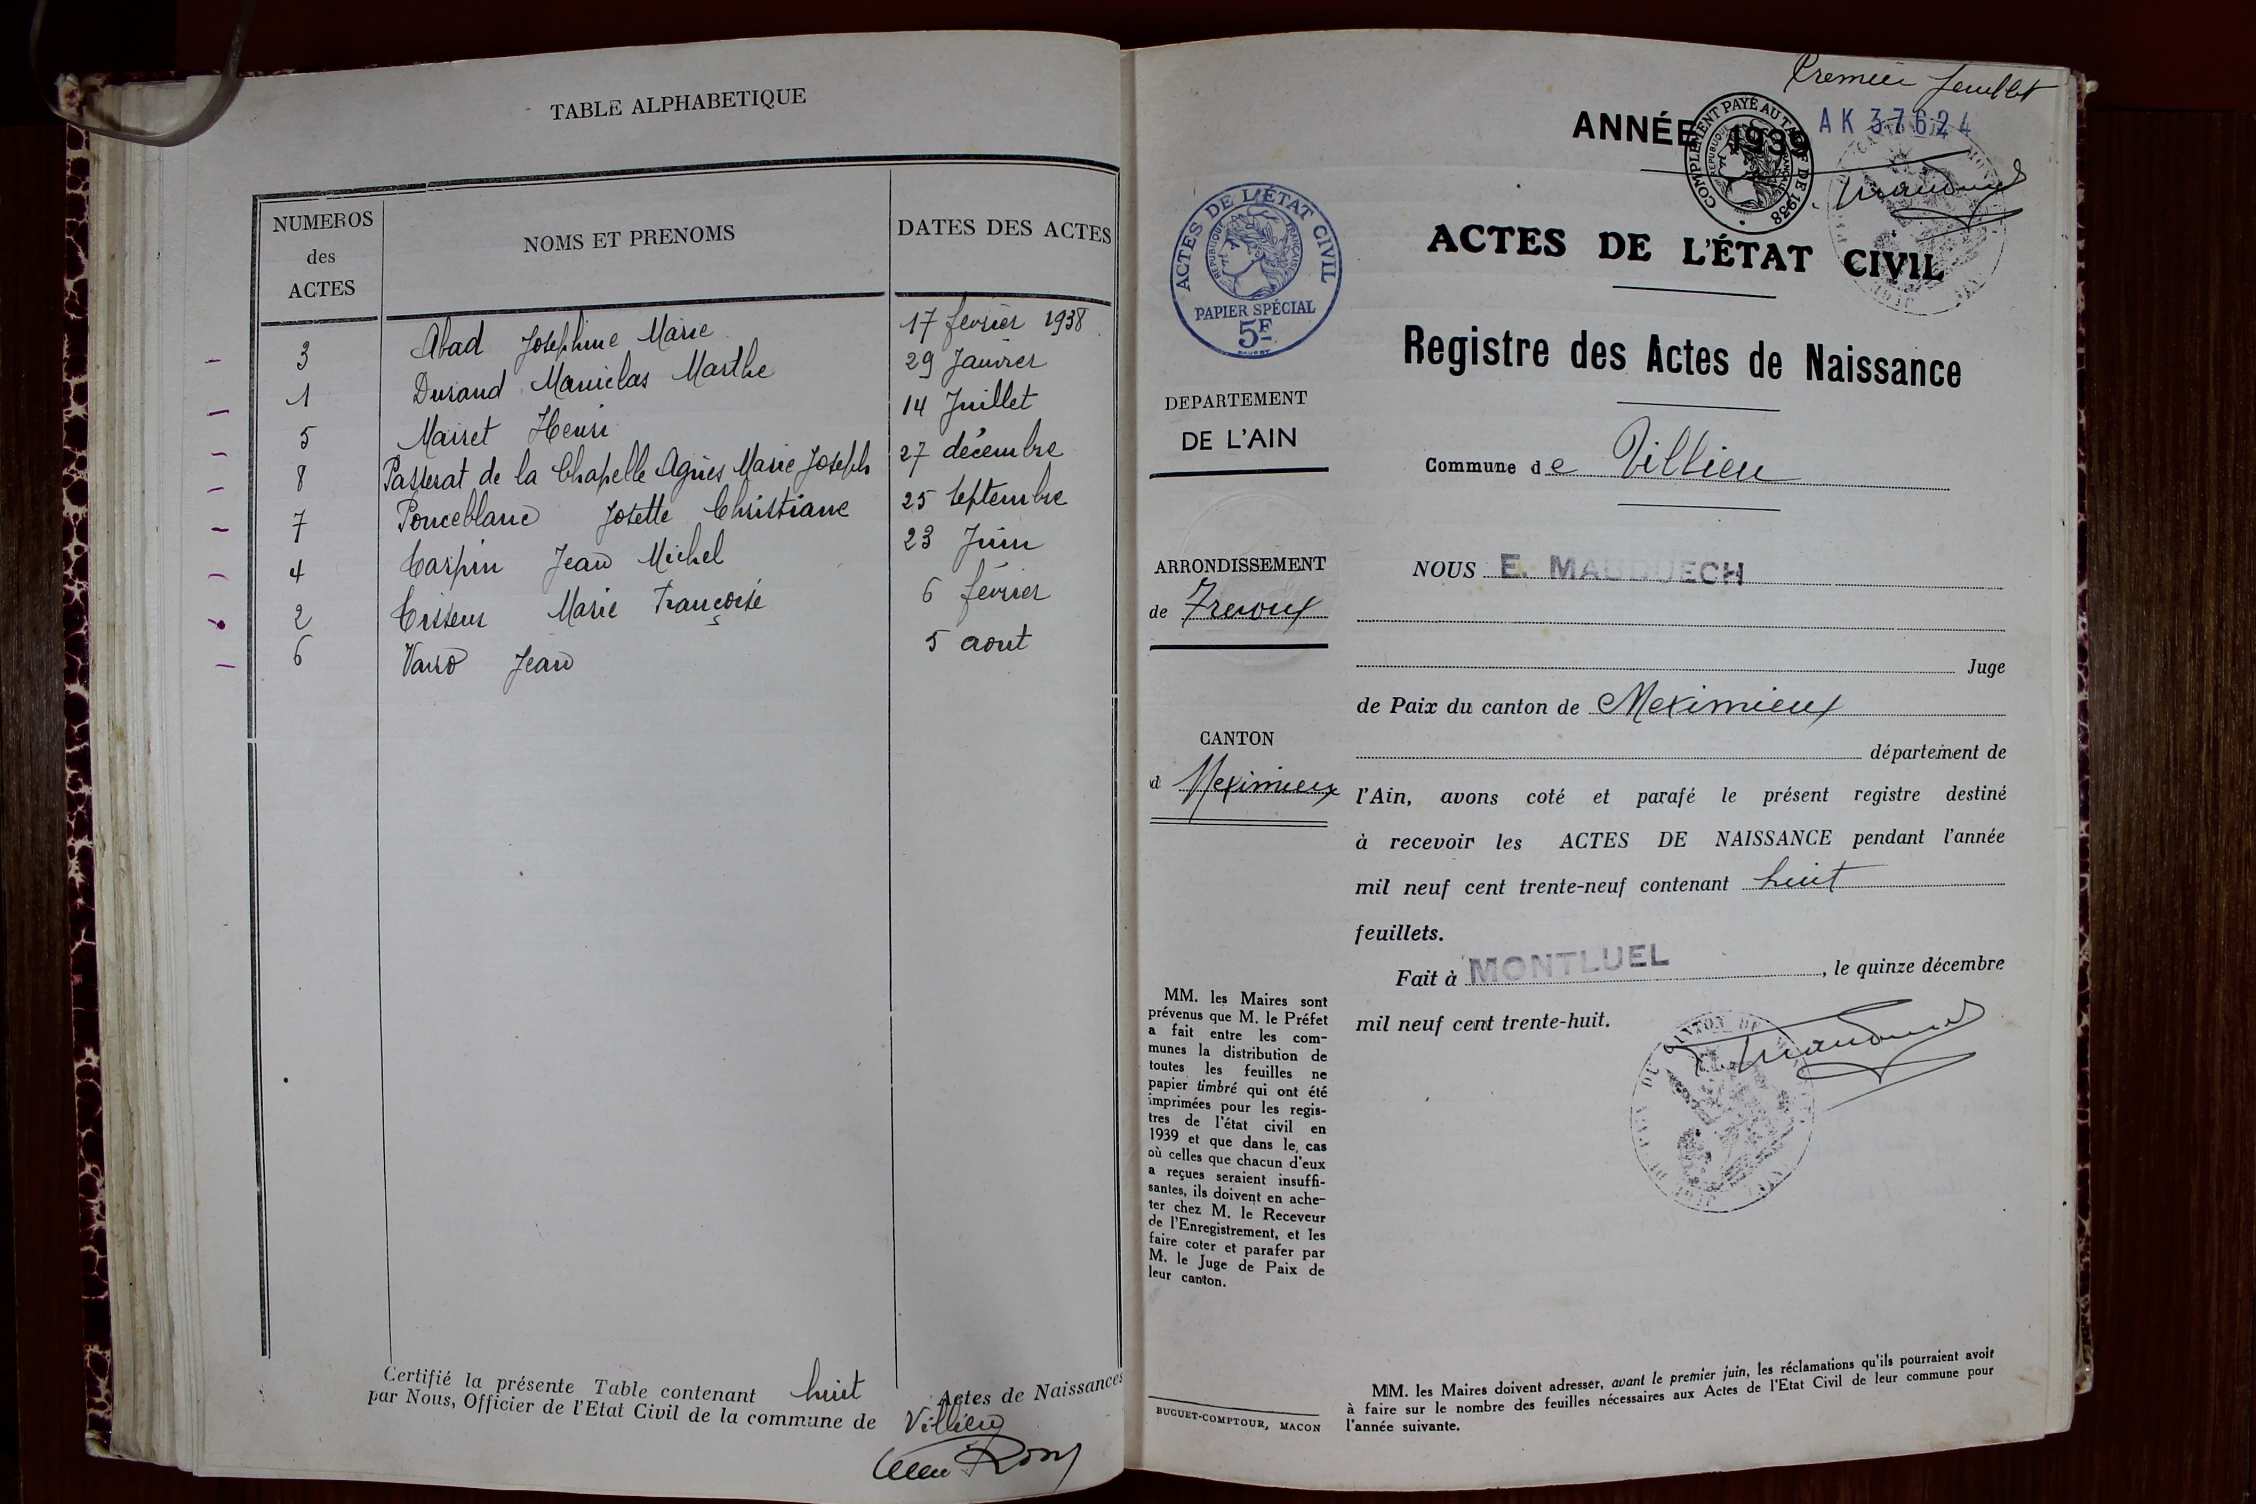 TABLE ALPHABETIQUE
NUMEROS des ACTES
NOMS ET PRENOMS
DATES DES ACTES
3 Abad Josephine Marie 17 février 1938
1 Durand Marthe 29 Janvier
5 Mairet Henri 14 Juillet
8 Passerat de la Chapelle Agnès Marie Joseph 27 décembre
7 Ponceblanc Josette Christiane 25 septembre
4 Carpin Jean Michel 23 Juin
2 Marie Françoise 6 février
6 Jean 5 aout
Certifié la présente Table contenant huit Actes de Naissances
par Nous, Officier de l'Etat Civil de la commune de Villieu
Premier feuillet
ANNÉE 1939
AK 37624
COMPLÉMENT PAYÉ AU TARIF DE 1938
RÉPUBLIQUE FRANÇAISE
ACTES DE L'ÉTAT CIVIL
RÉPUBLIQUE FRANÇAISE
PAPIER SPÉCIAL
5F
ACTES DE L'ÉTAT CIVIL
Registre des Actes de Naissance
Commune de Villieu
DEPARTEMENT
DE L'AIN
ARRONDISSEMENT
de Trevoux
CANTON
d Meximieux
NOUS E. MAUDUECH
Juge
de Paix du canton de Meximieux
département de
l'Ain, avons coté et parafé le présent registre destiné
à recevoir les ACTES DE NAISSANCE pendant l'année
mil neuf cent trente-neuf contenant huit
feuillets.
Fait à MONTLUEL, le quinze décembre
mil neuf cent trente-huit.
MM. les Maires sont
prévenus que M. le Préfet
a fait entre les com-
munes la distribution de
toutes les feuilles ne
papier timbré qui ont été
imprimées pour les regis-
tres de l'état civil en
1939 et que dans le, cas
où celles que chacun d'eux
a reçues seraient insuffi-
santes, ils doivent en ache-
ter chez M. le Receveur
de l'Enregistrement, et les
faire coter et parafer par
M. le Juge de Paix de
leur canton.
BUGUET-COMPTOUR, MACON
MM. les Maires doivent adresser, avant le premier juin, les réclamations qu'ils pourraient avoir
à faire sur le nombre des feuilles nécessaires aux Actes de l'Etat Civil de leur commune pour
l'année suivante.